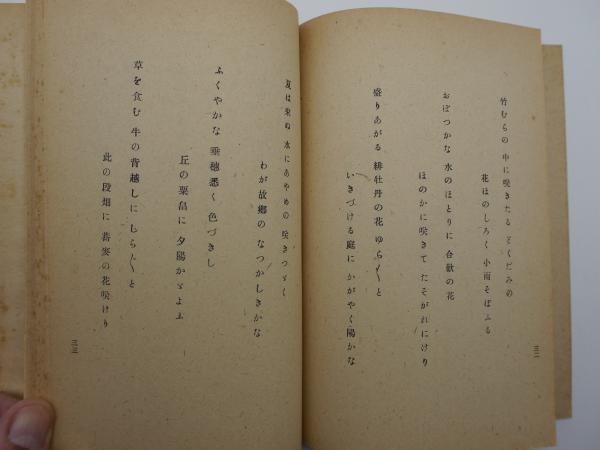 竹むらの 中に咲きたる どくだみの
花ほのしろく 小雨そぼふる
おぼつかな 水のほとりに 合歓の花
ほのかに咲きて たそがれにけり
盛りあがる 緋牡丹の花 ゆら〱と
いきづける庭に かがやく陽かな
三二
夏は来ぬ 水にあやめの 咲きつゞく
わが故郷の なつかしきかな
ふくやかな 垂穂悉く 色づきし
丘の粟畠に 夕陽かゞよふ
草を食む 牛の背越しに しら〲と
此の段畑に 蕎麥の花咲けり
三三